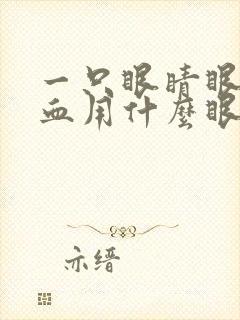 一只眼睛眼
血用什麽眼
亦缙